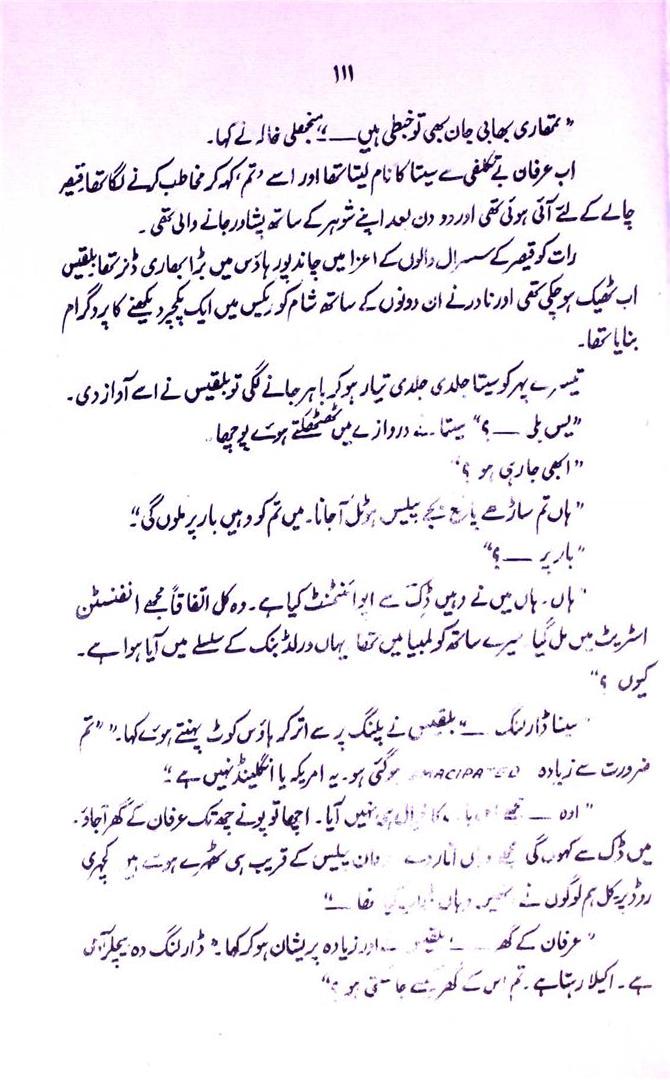 ۱۱۱
"تمھاری بھابی جان بھی تو خبطی ہیں ــــ" منجھلی خالہ نے کہا۔
اب عرفان بے تکلفی سے سیتا کا نام لیتا تھا اور اسے 'تم' کہہ کر مخاطب کرنے لگا تھا قیصر
چالے کے لئے آئی ہوئی تھی اور دو دن بعد اپنے شوہر کے ساتھ پشاور جانے والی تھی۔
رات کو قیصر کے سسرال والوں کے اعزا میں چاندپور ہاؤس میں بڑا بھاری ڈنر تھا بلقیس
اب ٹھیک ہو چکی تھی اور نادر نے ان دونوں کے ساتھ شام کو ریکس میں ایک پکچر دیکھنے کا پروگرام
بنایا تھا۔
تیسرے پہر کو سیتا جلدی جلدی تیار ہو کر باہر جانے لگی تو بلقیس نے اسے آواز دی۔
"یس بلی ــــ؟" سیتا نے دروازے میں ٹھٹھکتے ہوئے پوچھا
"ابھی جا رہی ہو ؟"
"ہاں تم ساڑھے پانچ بجے پیلس ہوٹل آجانا۔ میں تم کو وہیں بار پر ملوں گی"
"بار پر ــــ؟"
"ہاں۔ ہاں میں نے وہیں ڈک سے اپوائنٹمنٹ کیا ہے۔ وہ کل اتفاقاً مجھے انفنسٹن
اسٹریٹ میں مل گیا میرے ساتھ کولمبیا میں تھا یہاں ورلڈ بنک کے سلسلے میں آیا ہوا ہے۔
کیوں ؟"
"سیتا ڈارلنگ ــــ" بلقیس نے پلنگ پر سے اتر کر ہاؤس کوٹ پہنتے ہوئے کہا۔" "تم
ضرورت سے زیادہ EMACIPATED ہو گئی ہو۔ یہ امریکہ یا انگلینڈ نہیں ہے"
"اوہ ــــ مجھے خیال ہی نہیں آیا۔ اچھا تو پونے چھ تک عرفان کے گھر آجاؤ۔
میں ڈک سے کہوں گی مجھے وہاں اتار دے پیلس کے قریب ہی ٹھہرے ہوئے ہیں کچہری
روڈ پر کل ہم لوگوں نے وہاں تھا ــــ"
"عرفان کے گھر ــــ" بلقیس نے اور زیادہ پریشان ہو کر کہا۔ "ڈارلنگ وہ بیچلر آدمی
ہے۔ اکیلا رہتا ہے۔ تم اس کے گھر کیسے جا سکتی ہو ؟"